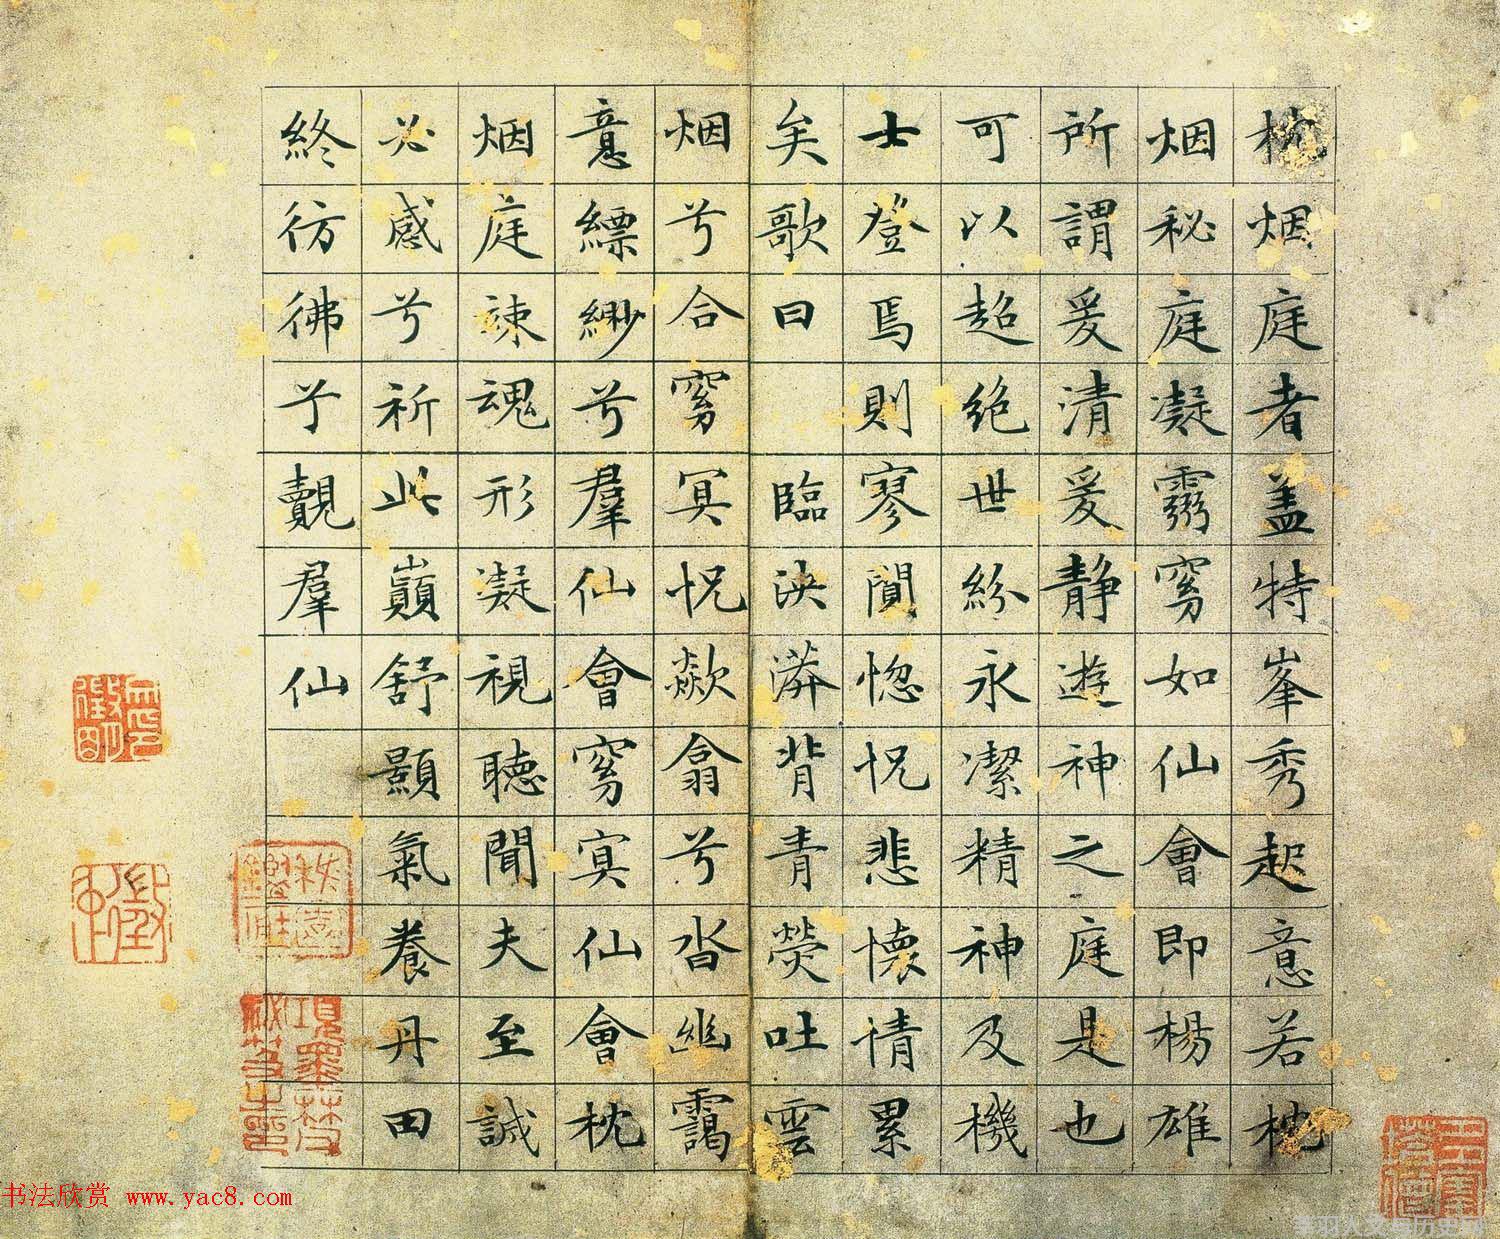 枕烟庭者盖特峯秀起意若枕
烟秘庭凝靈窈如仙會即楊雄
所謂爰清爰静遊神之庭是也
可以超絶世紛永潔精神及機
士登焉則寥闃惚怳悲懷情累
矣歌曰 臨泱漭背青熒吐雲
烟兮合窈冥怳欻翕兮沓幽靄
意縹緲兮羣仙會窈冥仙會枕
烟庭竦魂形凝視聽聞夫至誠
必感兮祈此巔舒顥氣養丹田
終彷彿兮覿羣仙
項墨林父秘笈之印
书法欣赏 www.yac8.com